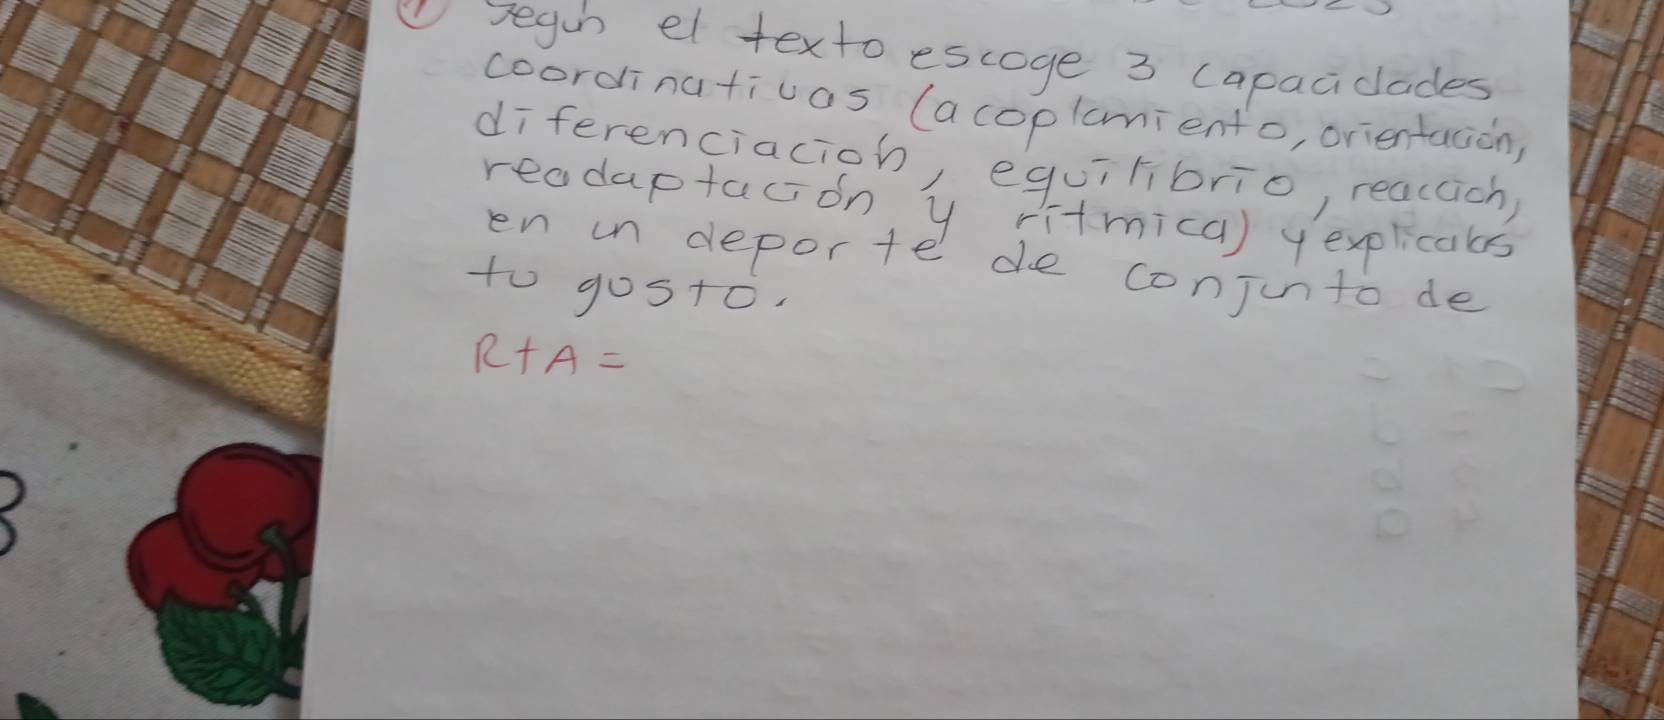 ① Según el texto escoge 3 capacidades
coordinativas (acoplamiento, orientación,
diferenciación, equilibrio, reacción,
readaptación y rítmica) y explicalos
en un deporte de conjunto de
tu gusto.
R+A =